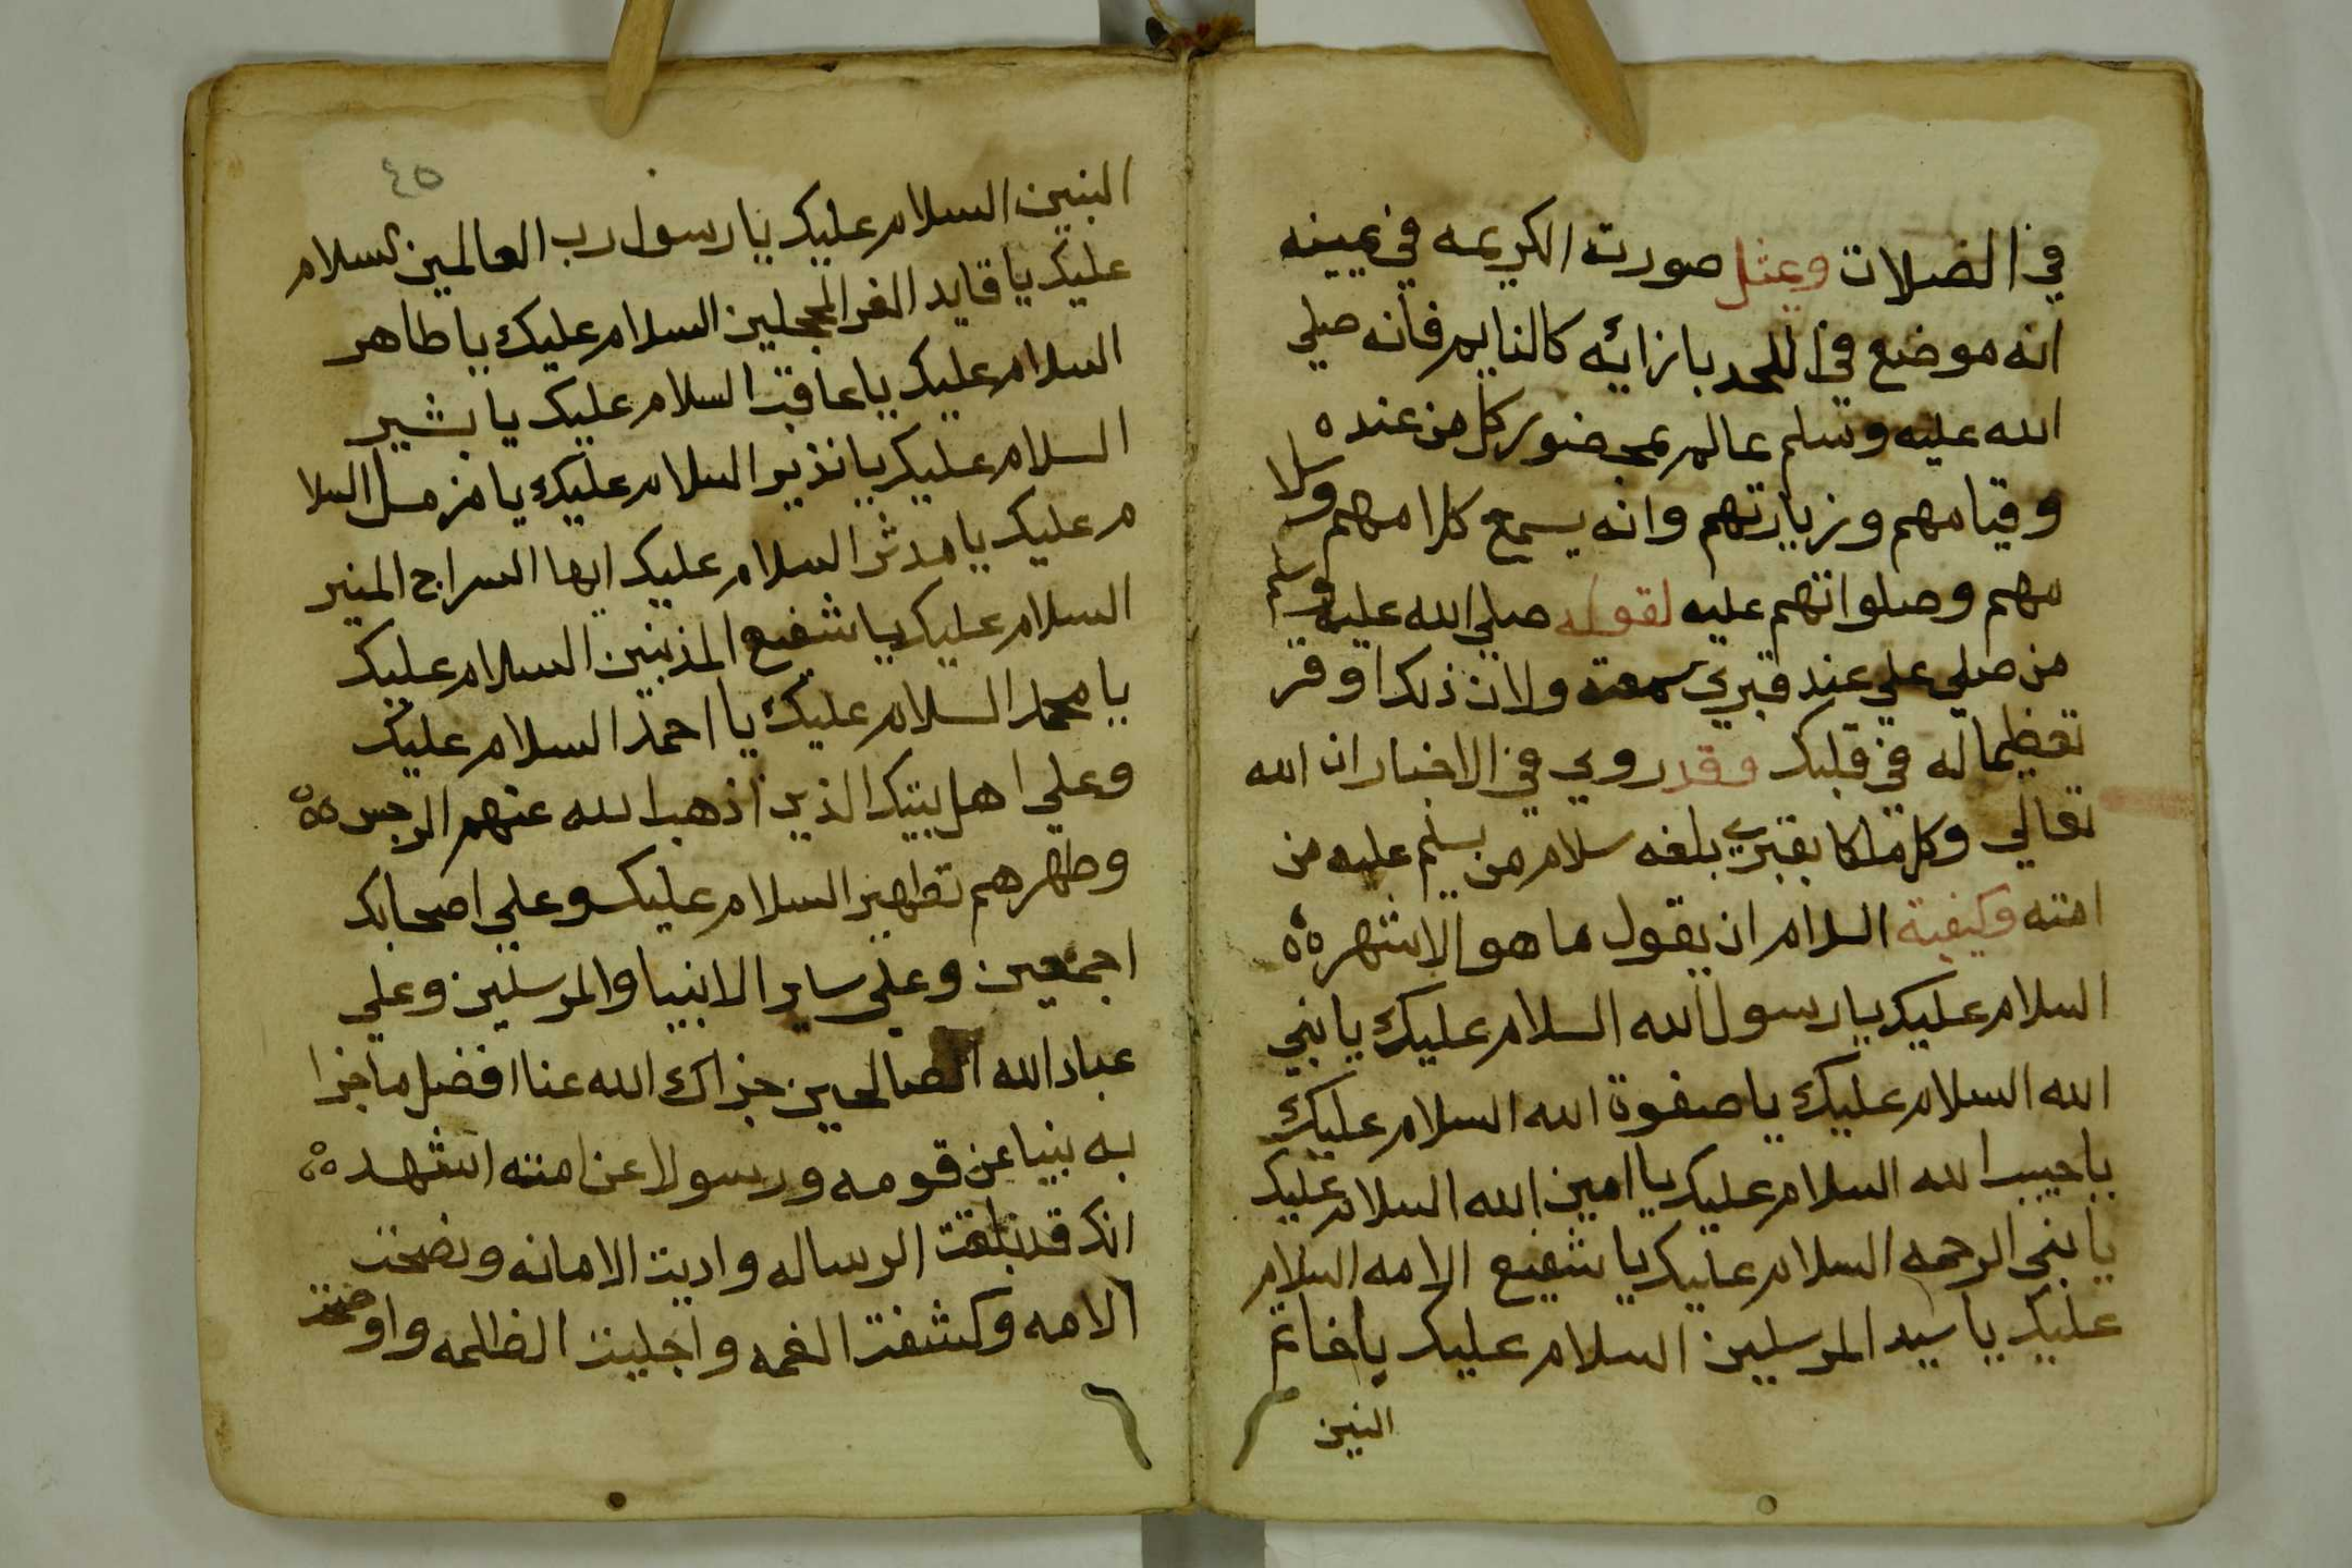 في الصلات ويمثل صورته الكريمه في يمينه
انه موضع في اللحد بازائه كالنايم فانه صلي
الله عليه وسلم عالم بحضور كل من عنده
وقيامهم وزيارتهم وانه يسمع كلامهم وسلا
مهم وصلواتهم عليه لقوله صلي الله عليه وسلم
من صلي علي عند قبري سمعته ولان ذلك اوقر
تعظيما له في قلبك وقد روي في الاخبار ان الله
تعالي وكل ملكا بقبري بلغه سلام من يسلم عليه من
امته وكيفية السلام ان يقول ما هو الاشهر
السلام عليك يا رسول الله السلام عليك يا نبي
الله السلام عليك يا صفوة الله السلام عليك
يا حبيب الله السلام عليك يا امين الله السلام عليك
يا نبي الرحمه السلام عليك يا شفيع الامه السلام
عليك يا سيد المرسلين السلام عليك يا خاتم
النبين
٤٥
النبين السلام عليك يا رسول رب العالمين السلام
عليك يا قايد الغر المحجلين السلام عليك يا طاهر
السلام عليك يا عاقب السلام عليك يا بشير
السلام عليك يا نذير السلام عليك يا مزمل السلا
م عليك يا مدثر السلام عليك ايها السراج المنير
السلام عليك يا شفيع المذنبين السلام عليك
يا محمد السلام عليك يا احمد السلام عليك
وعلي اهل بيتك الذين اذهب الله عنهم الرجس
وطهرهم تطهير السلام عليك وعلي اصحابك
اجمعين وعلي ساير الانبيا والمرسلين وعلي
عباد الله الصالحين جزاك الله عنا افضل ما جزا
به نبيا عن قومه ورسولا عن امته اشهد
انك قد بلغت الرساله واديت الامانه ونصحت
الامه وكشفت الغمه واجليت الظلمه واوضحت